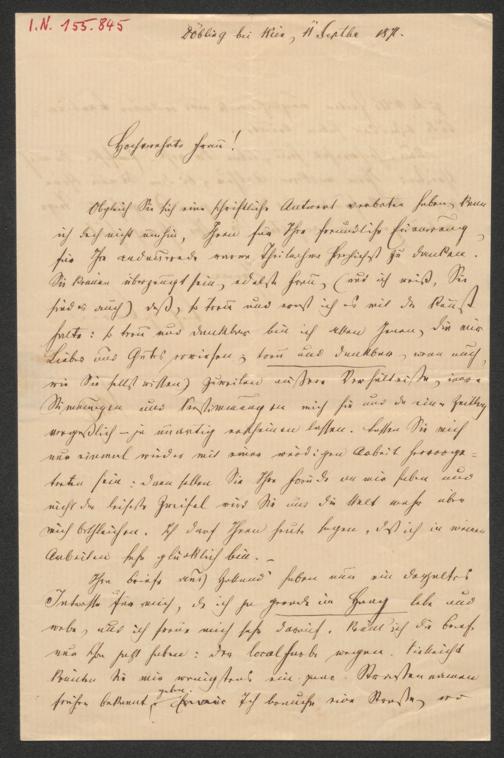 I.N. 155.845
Döbling bei Wien, 11 Septbr 1871.
Hochverehrte Frau!
Obgleich Sie sich eine schriftliche Antwort verbeten haben, kann
ich doch nicht umhin, Ihnen für Ihre freundliche Erinnerung,
für Ihre andauernde warme Theilnahme herzlichst zu danken.
Sie können überzeugt sein, edelste Frau, (und ich weiß, Sie
sind es auch) daß, so treu und ernst ich es mit der Kunst
halte: so treu und dankbar bin ich allen Jenen, die mir
Liebes und Gutes erwiesen, treu und dankbar, wenn auch,
wie Sie selbst wissen, zuweilen äußere Verhältnisse, innere
Stimmungen und Verstimmungen mich hie und da einen Zeitlang
vergeßlich – ja unartig erscheinen lassen. Lassen Sie mich
nur einmal wieder mit einer würdigen Arbeit hervorge-
treten sein: dann sollen Sie Ihre Freude an mir haben und
nicht der leiseste Zweifel wird Sie und die Welt mehr über
mich beschleichen. Ich darf Ihnen heute sagen, daß ich in meinen
Arbeiten sehr glücklich bin. –
Ihre Briefe aus Holland haben nun ein doppeltes
Interesse für mich, da ich ja gerade im Haag lebe und
webe, und ich freue mich sehr darauf. Könnt' ich die Briefe
nur schon jetzt haben: der Localfarbe wegen. Vielleicht
könnten Sie mir wenigstens ein paar Straßennamen
früher bekannt geben. Ich brauche eine Straße, wo